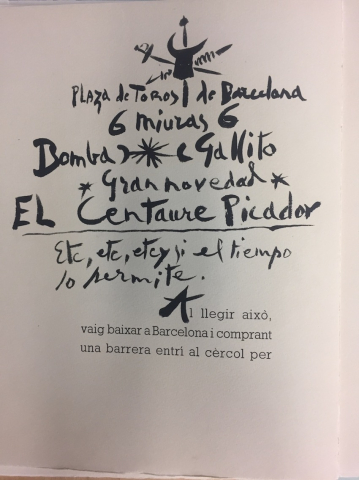 PLAZA de TOROS de Barcelona
6 miuras 6
Bomba y Gallito
* Gran novedad *
EL Centaure Picador
Etc, etc, etc y si el tiempo
lo permite.
Al llegir això,
vaig baixar a Barcelona i comprant
una barrera entrí al cèrcol per